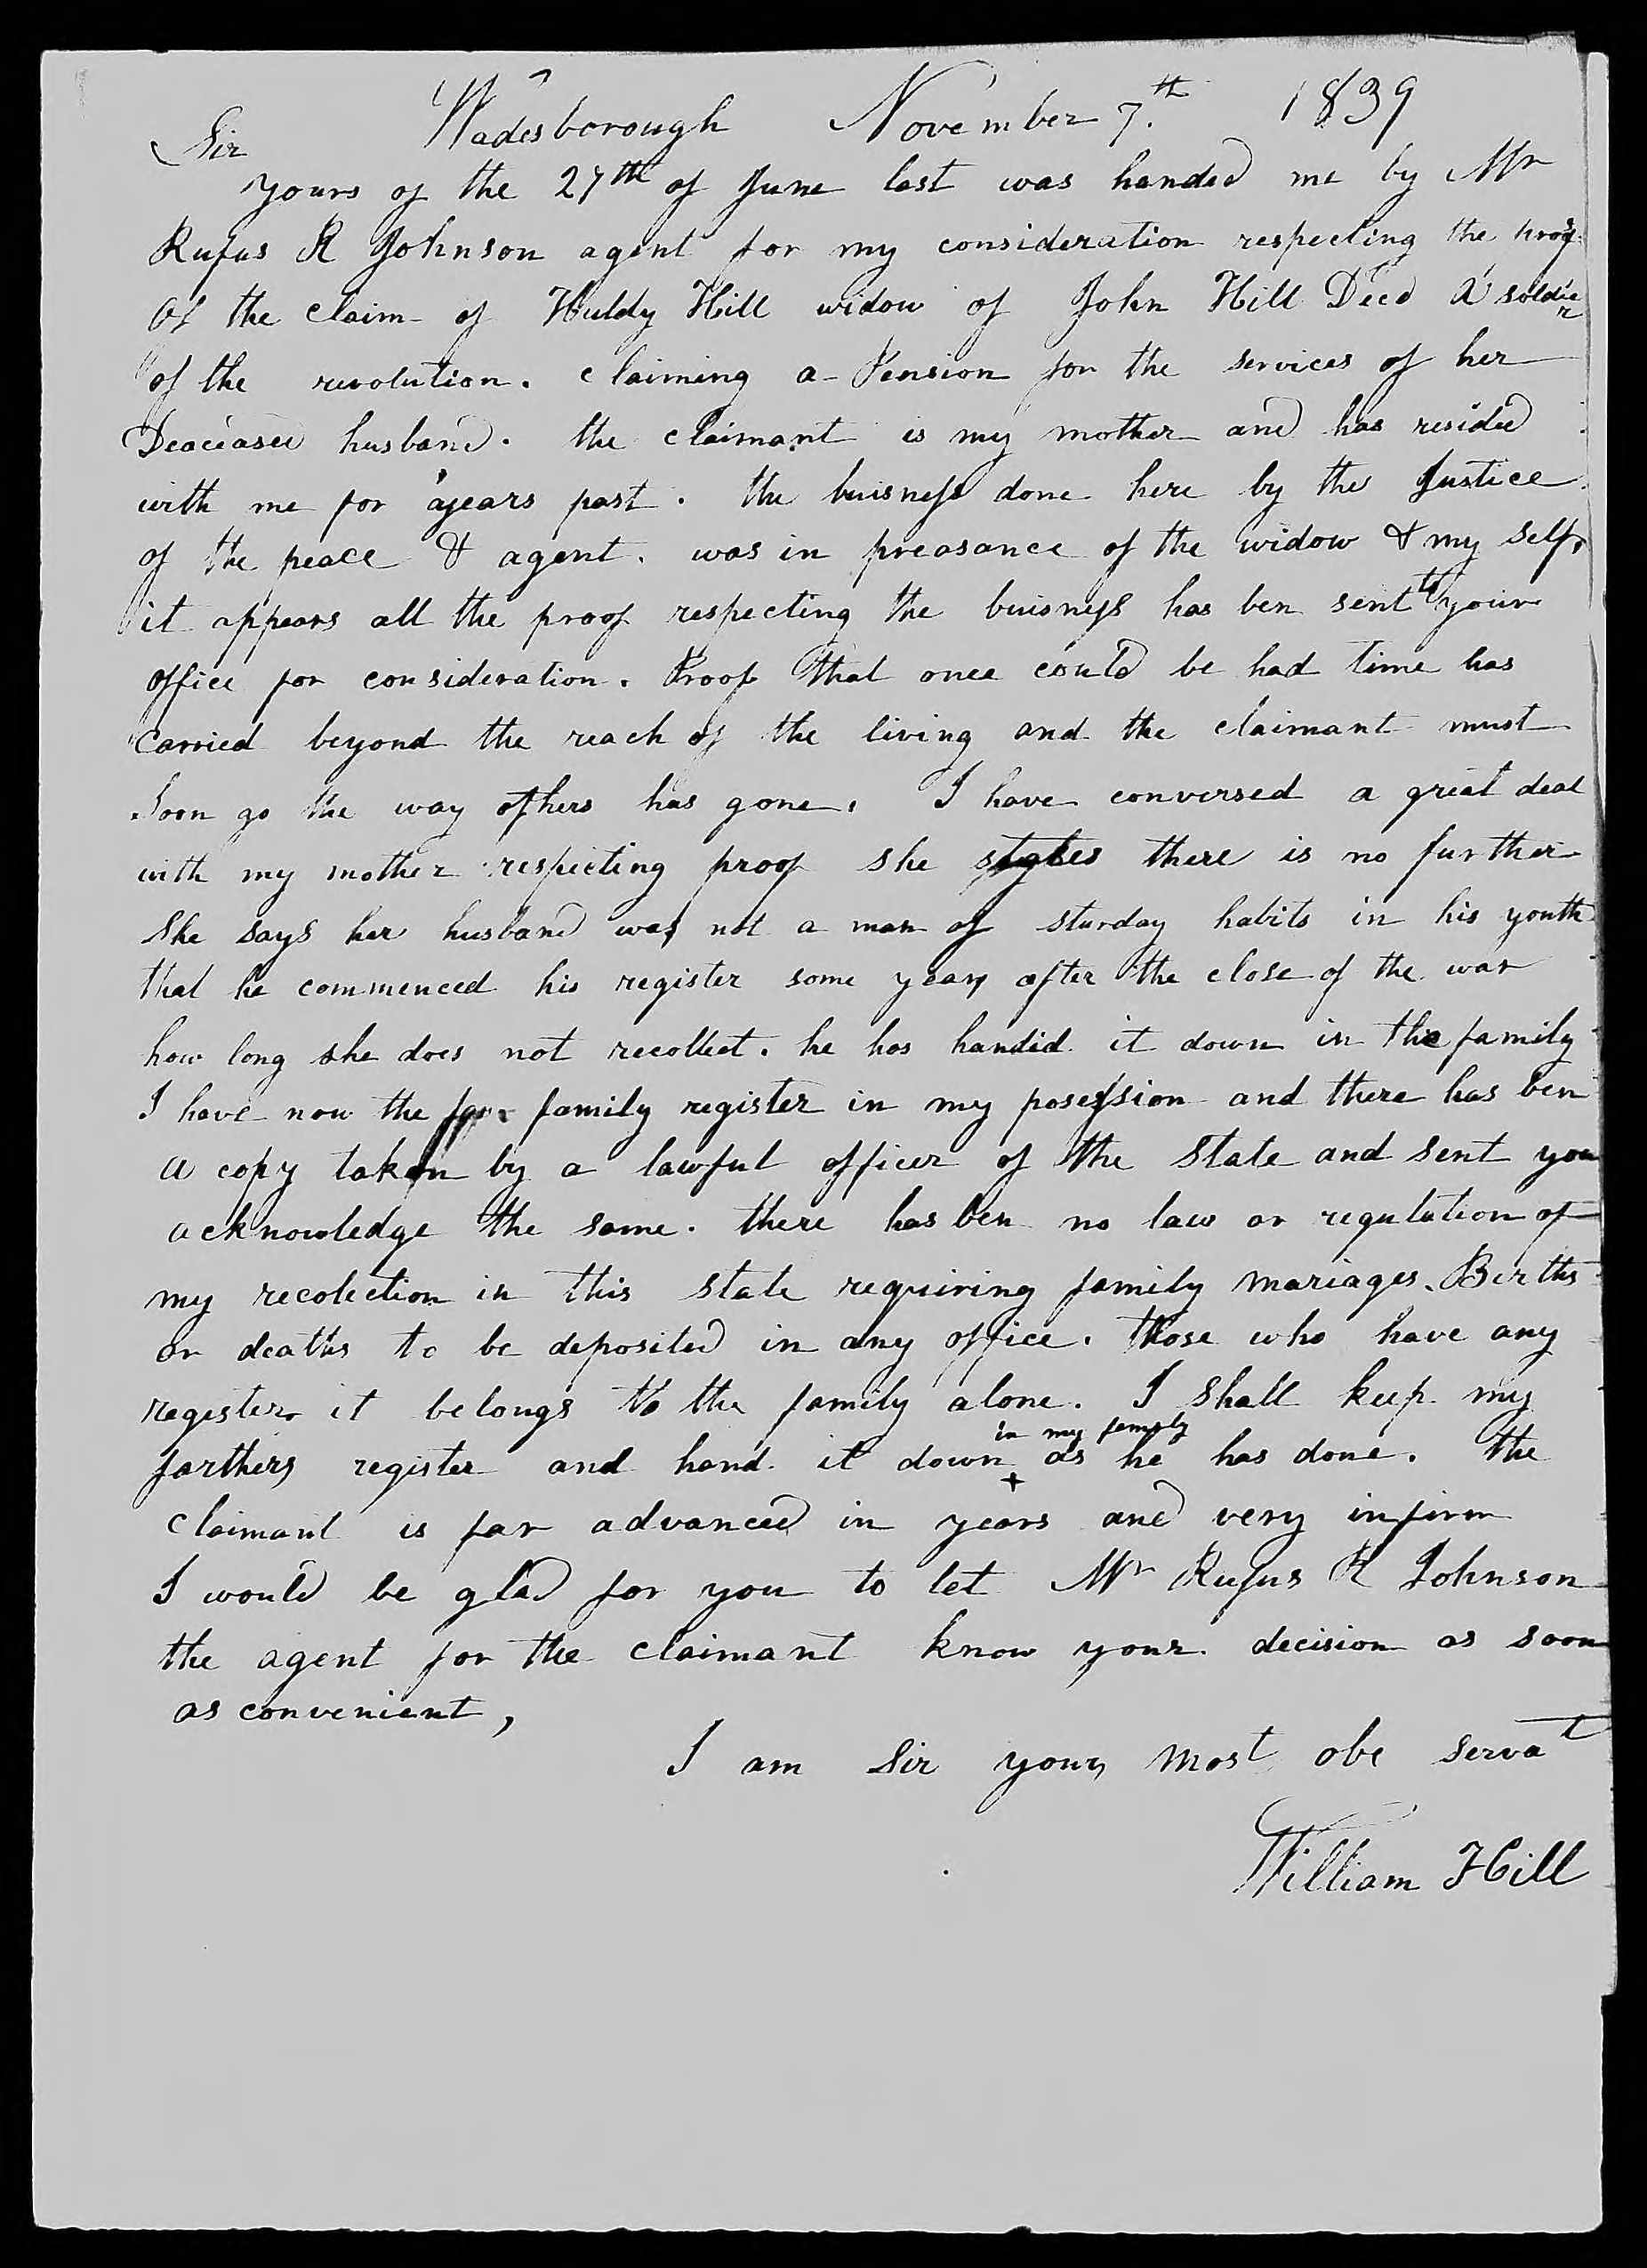 Wadesborough November 7th 1839
Sir
yours of the 27th of June last was handed me by Mr
Rufus R Johnson agent for my consideration respecting the proof
of the claim of Huldy Hill widow of John Hill Decd a soldier
of the revolution. claiming a Pension for the services of her
Deaceased husband. the claimant is my mother and has resided
with me for years past. the buisness done here by the Justice
of the peace & agent. was in preasance of the widow & my self,
it appears all the proof respecting the buisness has ben sent to your
office for consideration. Proof that once could be had time has
carried beyond the reach of the living and the claimant must
soon go the way others has gone. I have conversed a great deal
with my mother respecting proof she states there is no further
she says her husband was not a man of sturday habits in his youth
that he commenced his register some years after the close of the war
how long she does not recollect. he has handid it down in the family
I have now the family register in my posession and there has ben
a copy taken by a lawful officer of the state and sent you
acknowledge the same. there has ben no law or regulation of
my recolection in this state requiring family mariages. Births
or deaths to be deposited in any office. those who have any
register it belongs to the family alone. I shall keep my
farthers register and hand it down in my family as he has done. the
claimant is far advanced in years and very infirm
I would be glad for you to let Mr Rufus R Johnson
the agent for the claimant know your decision as soon
as convenient,
I am Sir yours most obe servat
William Hill